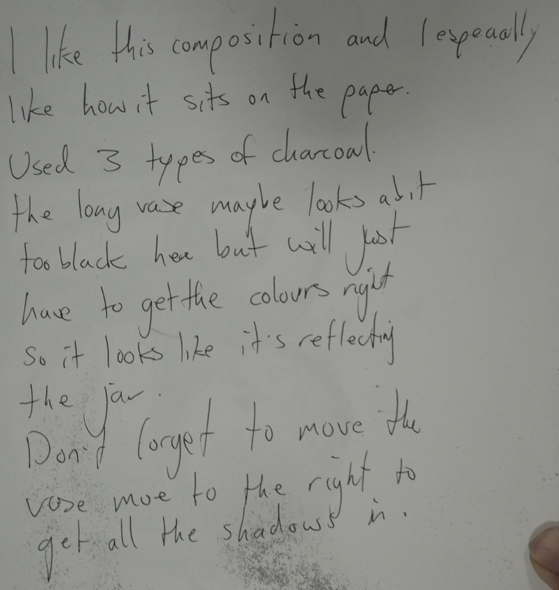 I like this composition and I especially
like how it sits on the paper.
Used 3 types of charcoal.
the long vase maybe looks a bit
too black here but will just
have to get the colours right
so it looks like it's reflecting
the jar.
Don't forget to move the
vase more to the right to
get all the shadows in.